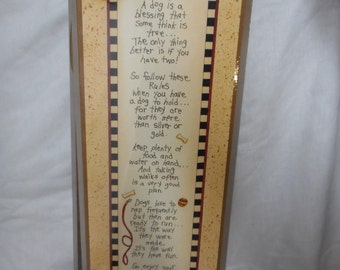 A dog is a
blessing that
some think is
true....
The only thing
better is if you
have two!
So follow these
Rules
when you have
a dog to hold...
for they are
worth more
than silver or
gold.
Keep plenty of
food and
water on hand...
And taking
walks often
is a very good
plan.
Dogs love to
nap frequently
but then are
ready to run...
It's the way
they were
made.
It's the way
they have fun.
So enjoy your